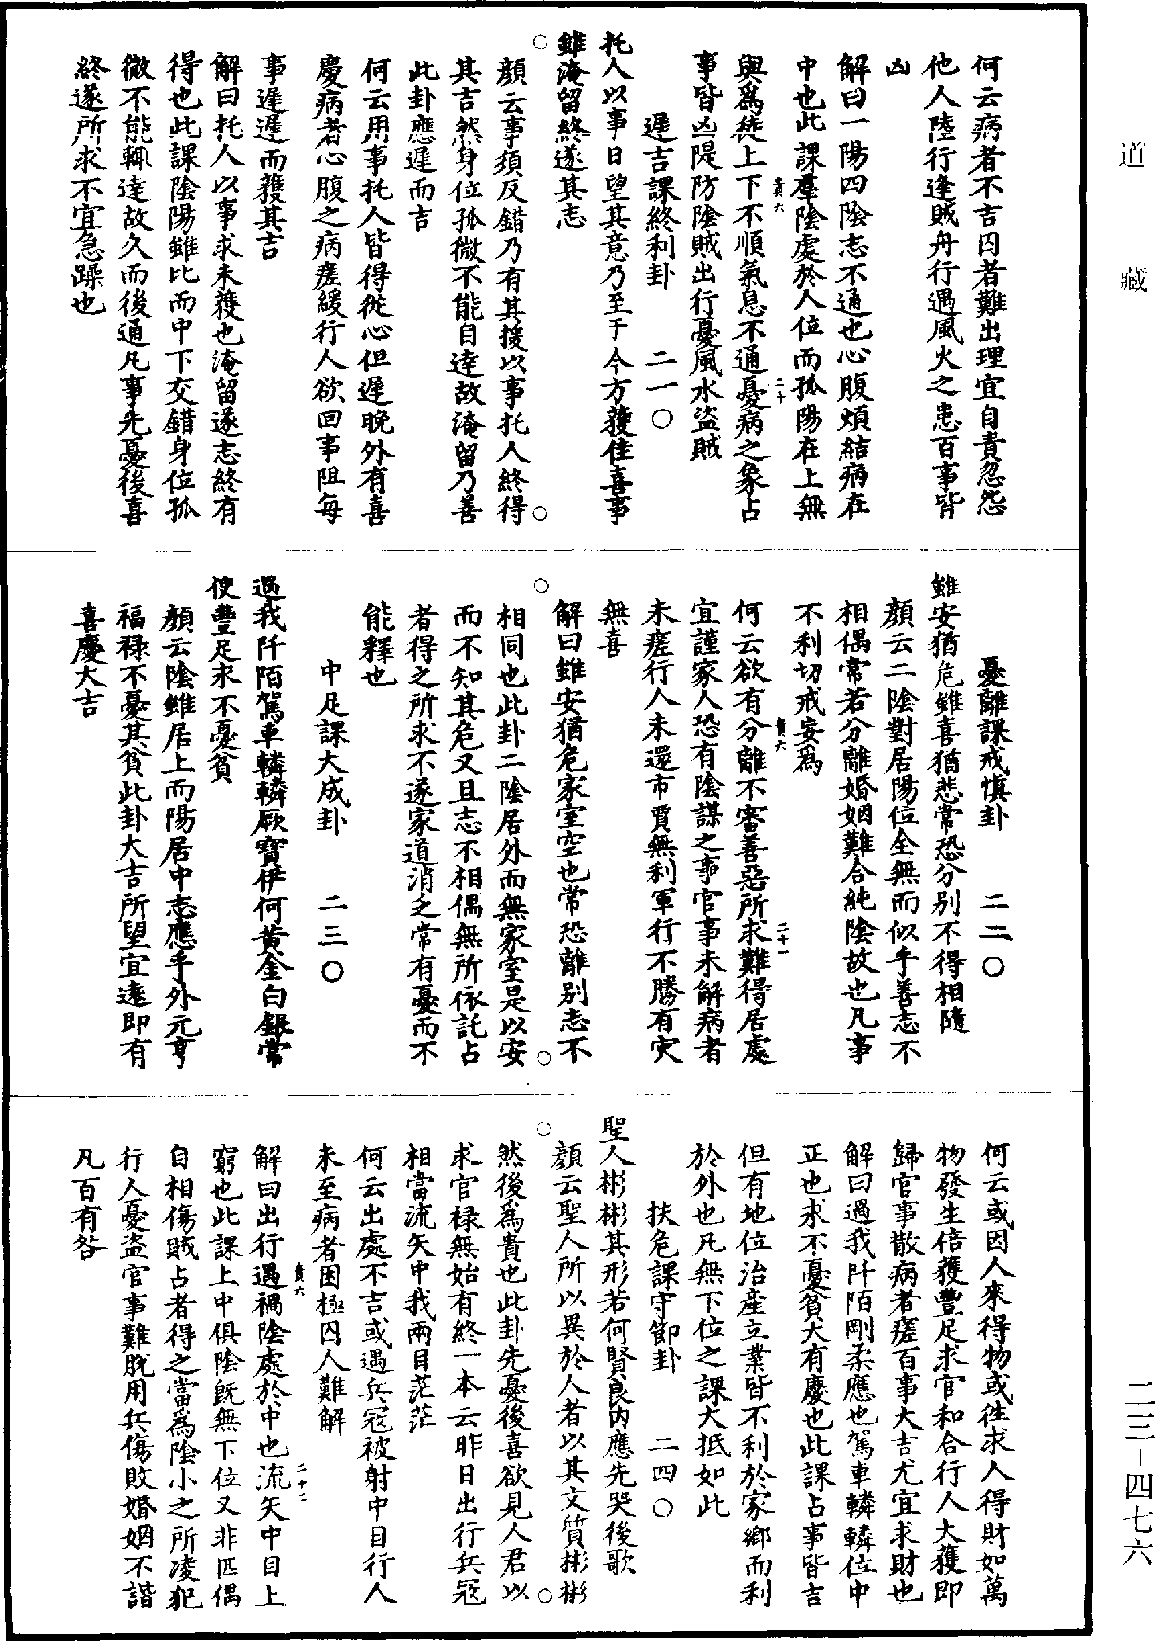 道藏
何云病者不吉囚者難出理宜自責忽怨
他人陸行逢賊舟行遇風火之患百事皆
凶
解曰一陽四陰志不通也心腹煩結病在
中也此課羣陰處於人位而孤陽在上無
貴六
二十
與為徒上下不順氣息不通憂病之象占
事皆凶隄防陰賊出行憂風水盜賊
遲吉課終利卦 二一〇
托人以事日望其意乃至于今方獲佳喜事
雖淹留終遂其志
顏云事須反錯乃有其援以事托人終得
其吉然身位孤微不能自達故淹留乃善
此卦應遲而吉
何云用事托人皆得從心但遲晚外有喜
慶病者心腹之病瘥緩行人欲回事阻每
事遲遲而獲其吉
解曰托人以事求未獲也淹留遂志終有
得也此課陰陽雖比而中下交錯身位孤
微不能輒達故久而後通凡事先憂後喜
終遂所求不宜急躁也
憂離課戒慎卦 二二〇
雖安猶危雖喜猶悲常恐分别不得相隨
顏云二陰對居陽位全無而似乎善志不
相偶常若分離婚姻難合純陰故也凡事
不利切戒妄為
貴六
二十一
何云欲有分離不審善惡所求難得居處
宜謹家人恐有陰謀之事官事未解病者
未瘥行人未還市賈無利軍行不勝有灾
無喜
解曰雖安猶危家室空也常恐離别志不
相同也此卦二陰居外而無家室是以安
而不知其危又且志不相偶無所依託占
者得之所求不遂家道消乏常有憂而不
能釋也
中足課大成卦 二三〇
過我阡陌駕車轔轔厥寶伊何黃金白銀常
使豐足求不憂貧
顏云陰雖居上而陽居中志應乎外元亨
福祿不憂其貧此卦大吉所望宜遠即有
喜慶大吉
何云或因人來得物或往求人得財如萬
物發生倍獲豐足求官和合行人大獲即
歸官事散病者瘥百事大吉尤宜求財也
解曰過我阡陌剛柔應也駕車轔轔位中
正也求不憂貧大有慶也此課占事皆吉
但有地位治產立業皆不利於家鄉而利
於外也凡無下位之課大抵如此
扶危課守節卦 二四〇
聖人彬彬其形若何賢良內應先哭後歌
顏云聖人所以異於人者以其文質彬彬
然後為貴也此卦先憂後喜欲見人君以
求官祿無始有終一本云昨日出行兵寇
相當流矢中我兩目茫茫
何云出處不吉或遇兵寇被射中目行人
未至病者困極囚人難解
貴六
二十二
解曰出行遇禍陰處於中也流矢中目上
窮也此課上中俱陰既無下位又非匹偶
自相傷賊占者得之當為陰小之所凌犯
行人憂盜官事難脫用兵傷敗婚姻不諧
凡百有咎
二三-四七六